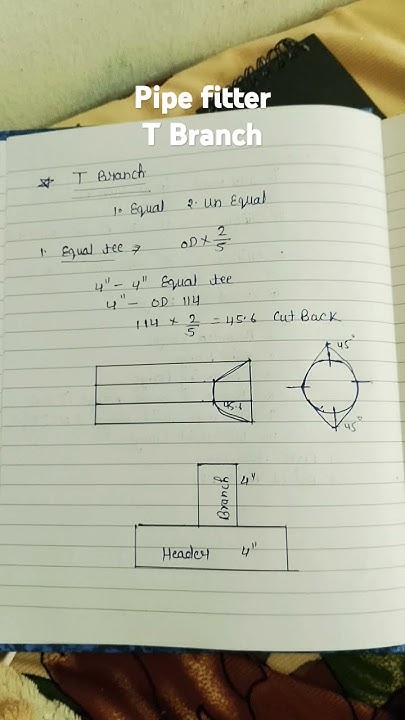 Pipe fitter
T Branch
T Branch
1. Equal 2. Un Equal
1. Equal tee ⇒ OD × 2/5
4" - 4" Equal tee
4" - OD: 114
114 × 2/5 = 45.6 Cut Back
45°
45.6
45°
Branch 4"
Header 4"